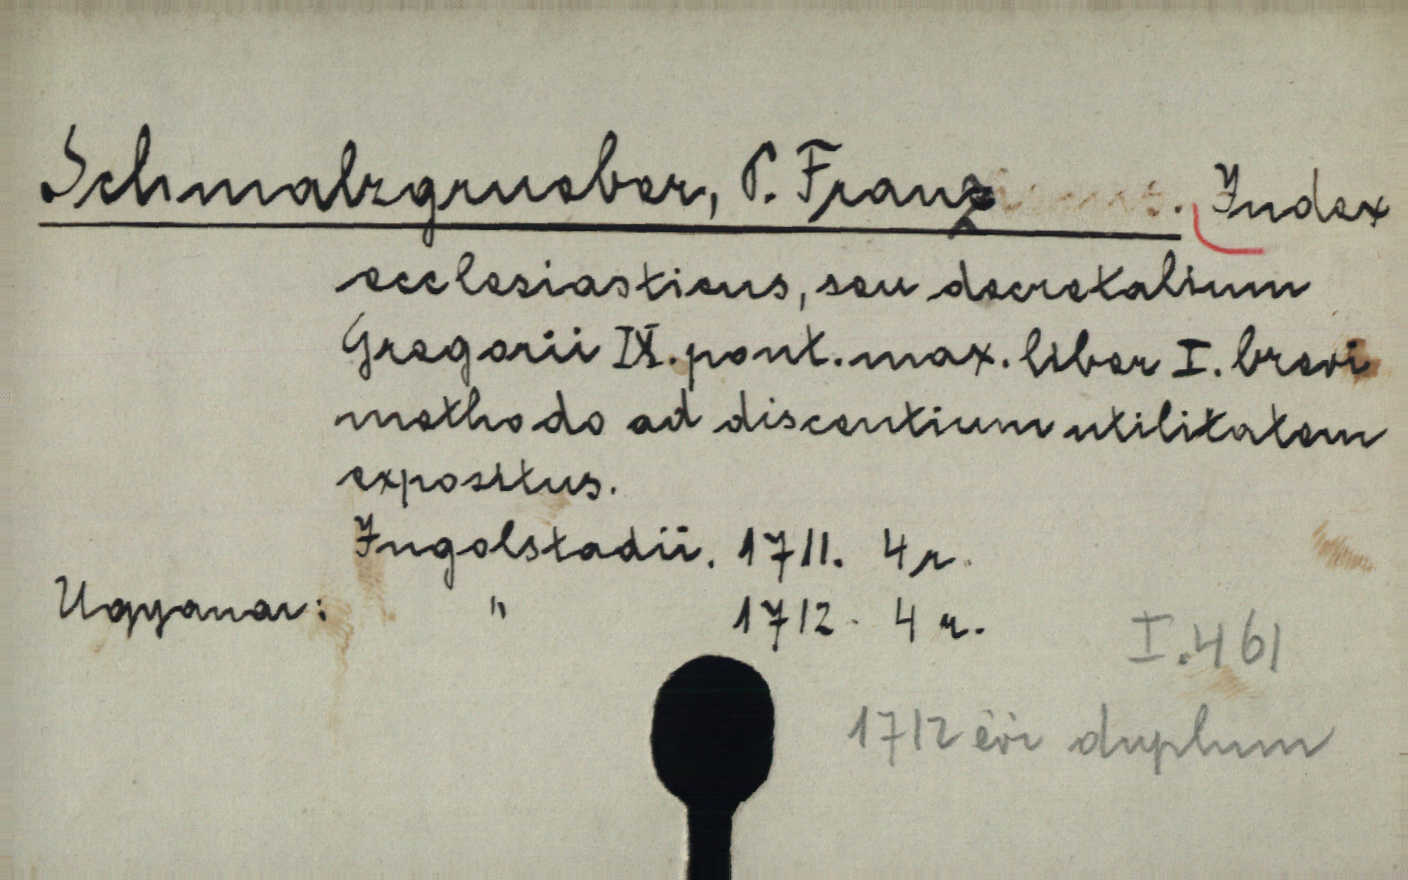 Schmalzgrueber, P. Franz. Index
ecclesiasticus, seu decretalium
Gregorii IX. pont. max. liber I. brevi
methodo ad discentium utilitatem
expositus.
Ingolstadii. 1711. 4 r.
Ugyanaz: " 1712. 4 r.
I. 461
1712 évi duplum